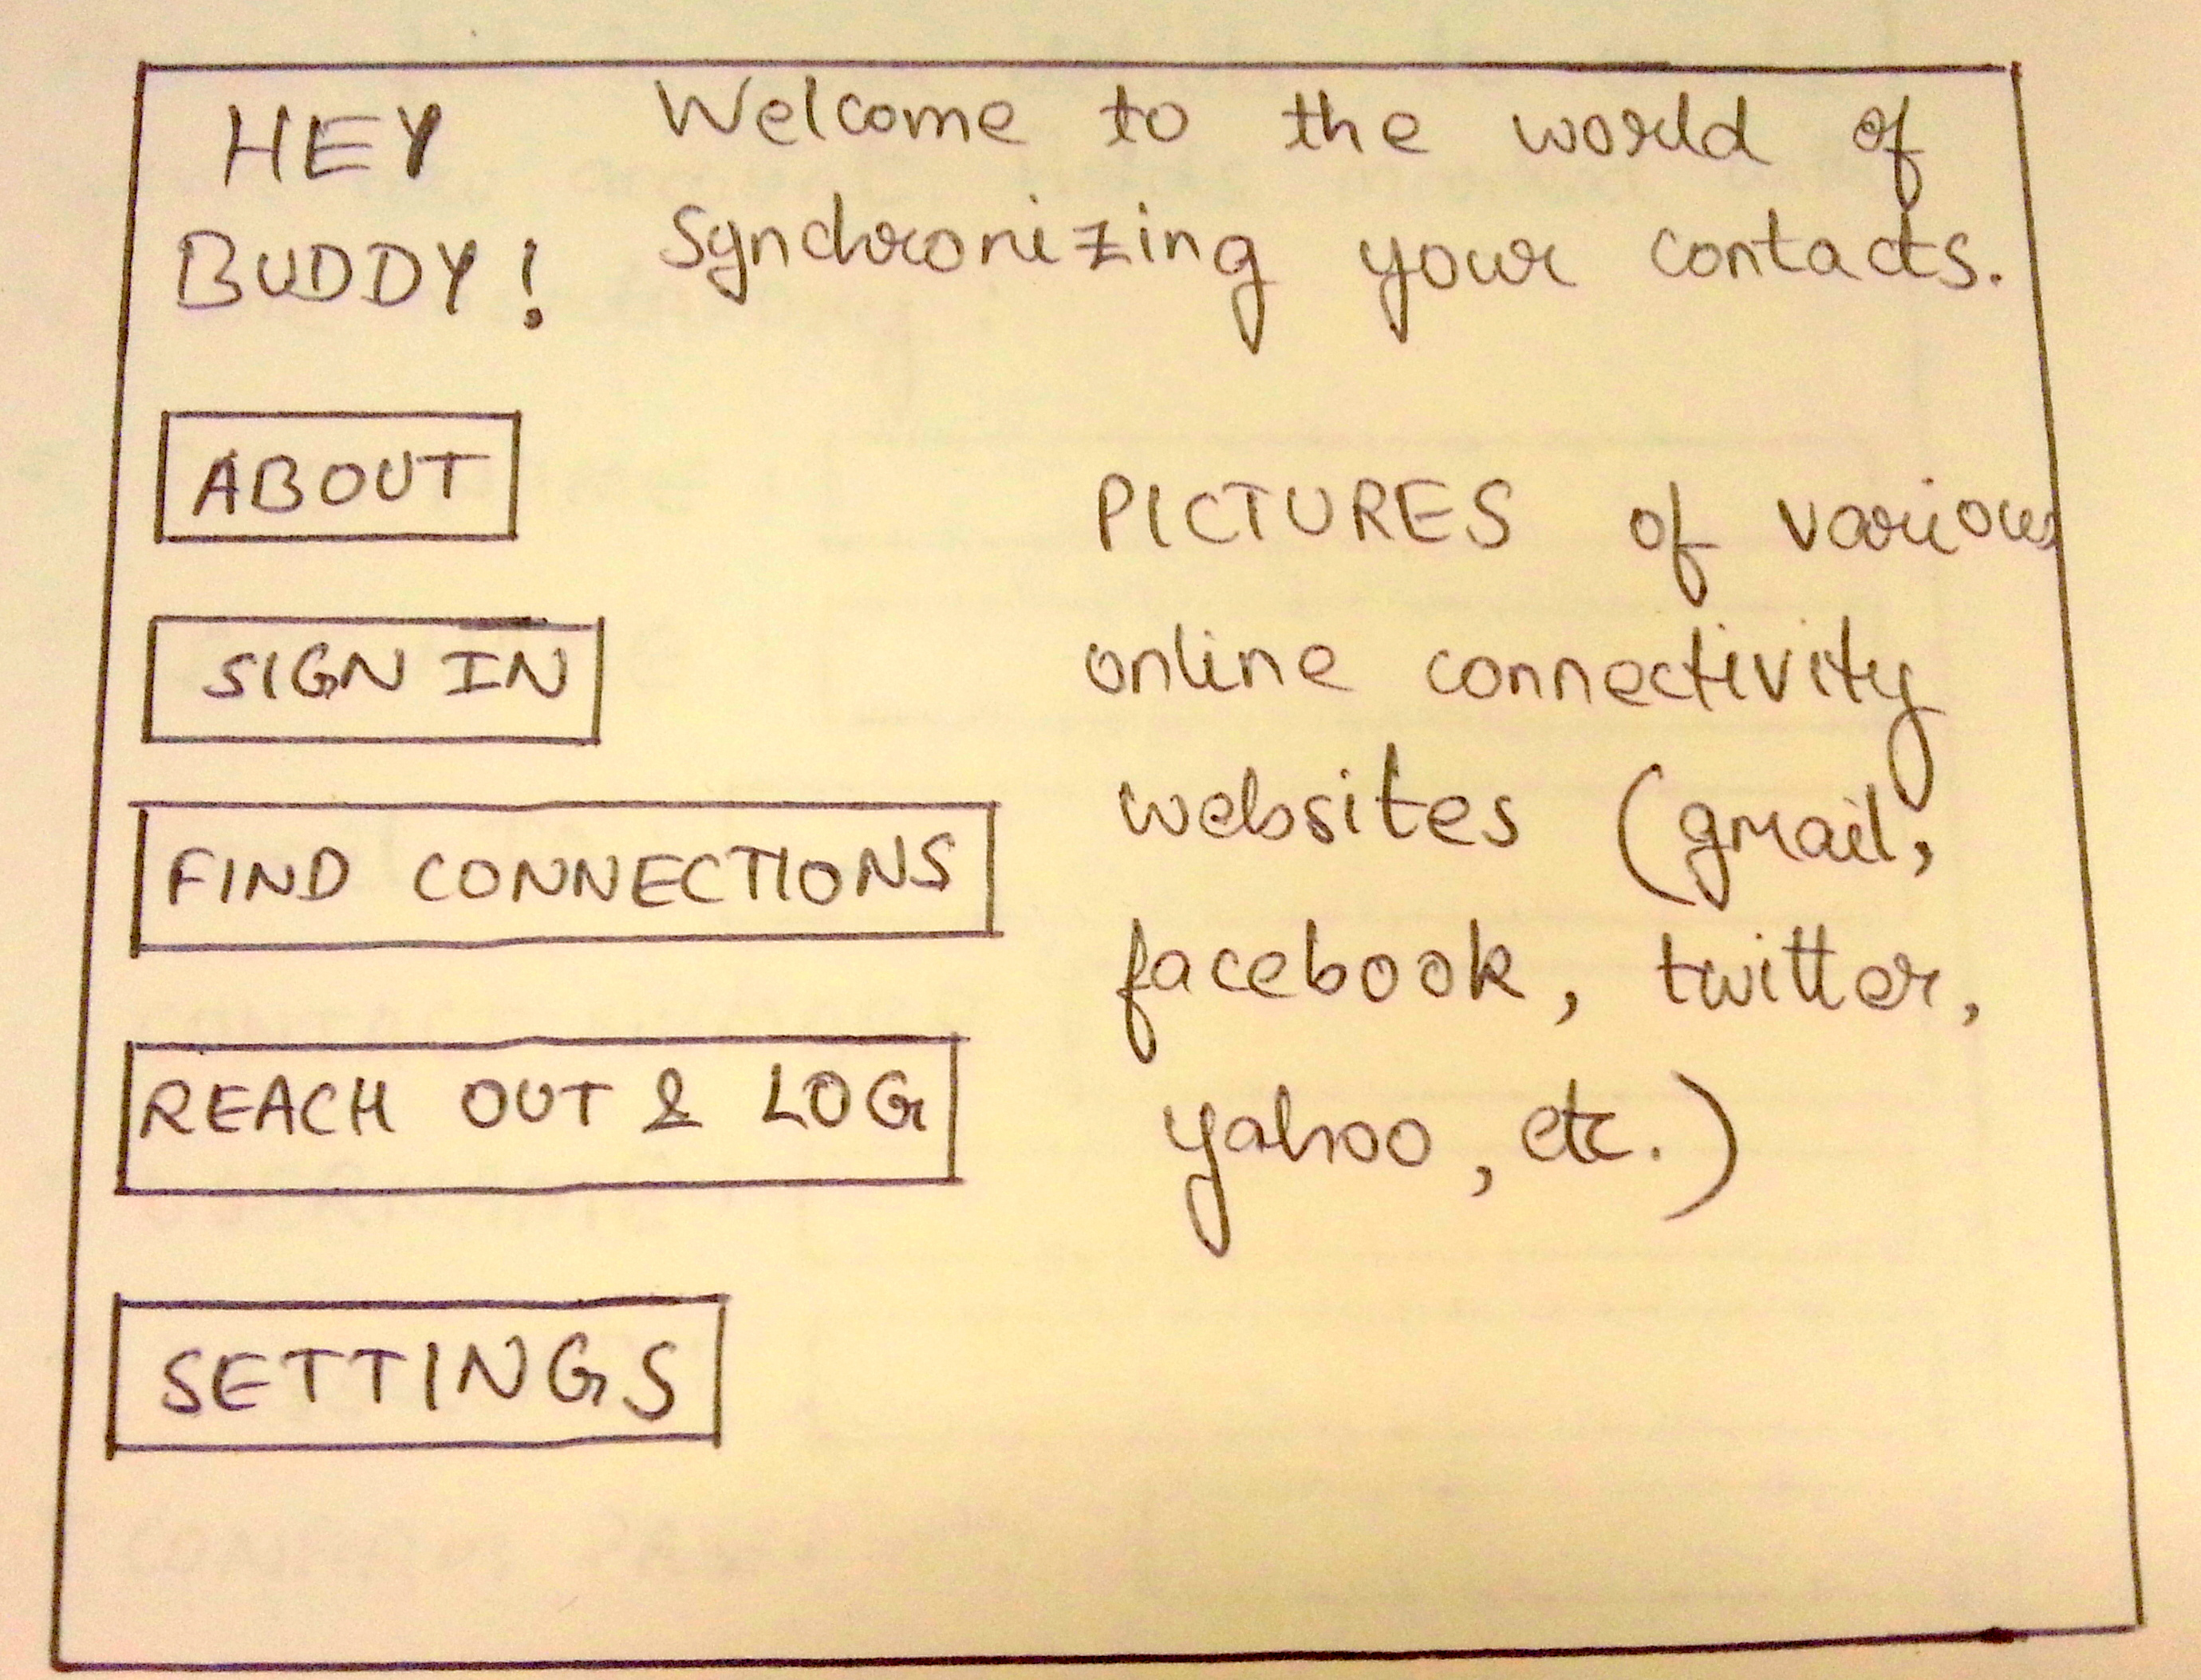 HEY
BUDDY!
Welcome to the world of
Synchronizing your contacts.
ABOUT
SIGN IN
FIND CONNECTIONS
REACH OUT & LOG
SETTINGS
PICTURES of various
online connectivity
websites (gmail,
facebook, twitter,
yahoo, etc.)